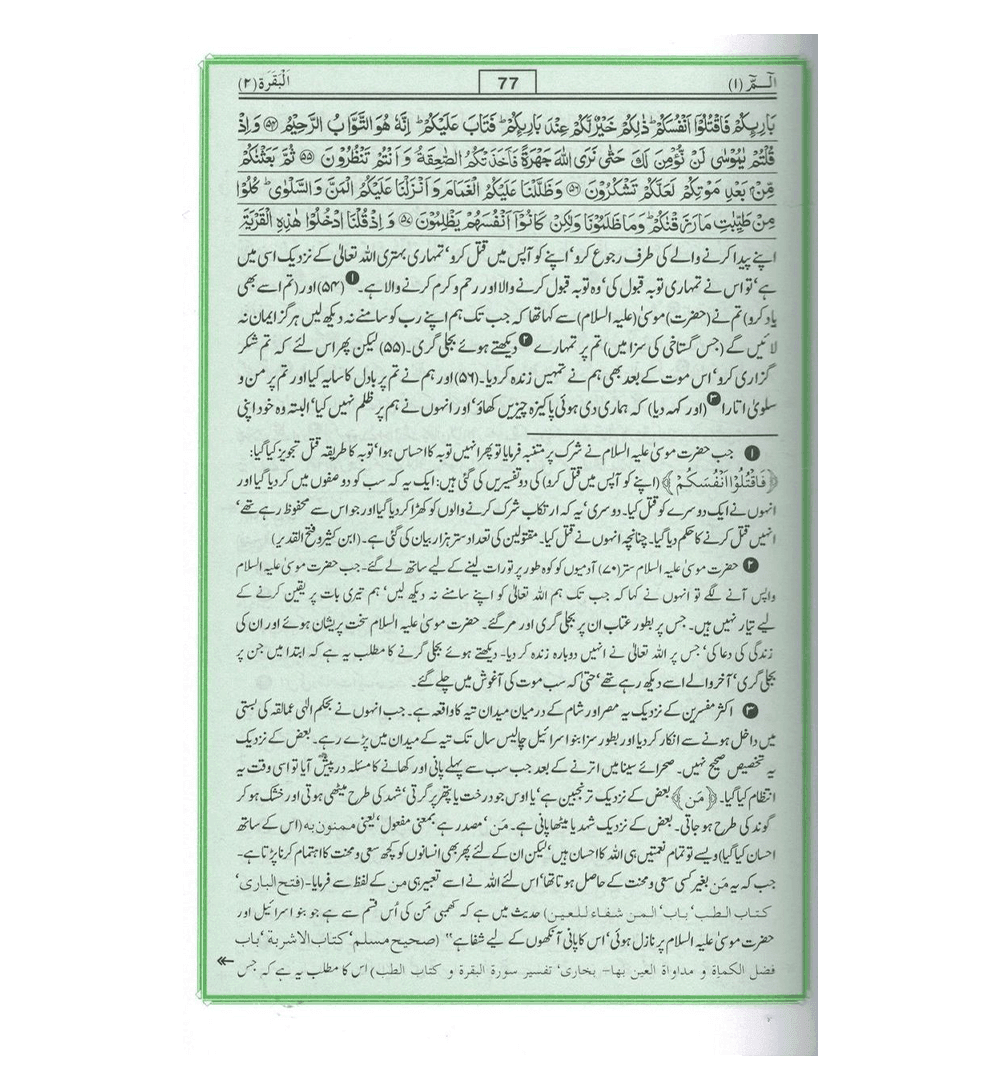 الٓـمّٓ (۱)
77
البقرة (۲)
بَارِىِٕكُمْ فَاقْتُلُوْٓا اَنْفُسَكُمْ ؕ ذٰلِكُمْ خَيْرٌ لَّكُمْ عِنْدَ بَارِىِٕكُمْ ؕ فَتَابَ عَلَيْكُمْ ؕ اِنَّهٗ هُوَ التَّوَّابُ الرَّحِيْمُ ۵۴ وَاِذْ
قُلْتُمْ يٰمُوْسٰى لَنْ نُّؤْمِنَ لَكَ حَتّٰى نَرَى اللّٰهَ جَهْرَةً فَاَخَذَتْكُمُ الصّٰعِقَةُ وَاَنْتُمْ تَنْظُرُوْنَ ۵۵ ثُمَّ بَعَثْنٰكُمْ
مِّنْۢ بَعْدِ مَوْتِكُمْ لَعَلَّكُمْ تَشْكُرُوْنَ ۵۶ وَظَلَّلْنَا عَلَيْكُمُ الْغَمَامَ وَاَنْزَلْنَا عَلَيْكُمُ الْمَنَّ وَالسَّلْوٰى ؕ كُلُوْا
مِنْ طَيِّبٰتِ مَا رَزَقْنٰكُمْ ؕ وَمَا ظَلَمُوْنَا وَلٰكِنْ كَانُوْٓا اَنْفُسَهُمْ يَظْلِمُوْنَ ۵۷ وَاِذْ قُلْنَا ادْخُلُوْا هٰذِهِ الْقَرْيَةَ
اپنے پیدا کرنے والے کی طرف رجوع کرو، اپنے کو آپس میں قتل کرو، تمہاری بہتری اللہ تعالیٰ کے نزدیک اسی میں
ہے، تو اس نے تمہاری توبہ قبول کی، وہ توبہ قبول کرنے والا اور رحم و کرم کرنے والا ہے۔ ۱ (۵۴) اور (تم اسے بھی
یاد کرو) تم نے (حضرت) موسیٰ (علیہ السلام) سے کہا تھا کہ جب تک ہم اپنے رب کو سامنے نہ دیکھ لیں ہرگز ایمان نہ
لائیں گے (جس گستاخی کی سزا میں) تم پر تمہارے ۲ دیکھتے ہوئے بجلی گری۔ (۵۵) لیکن پھر اس لئے کہ تم شکر
گزاری کرو، اس موت کے بعد بھی ہم نے تمہیں زندہ کر دیا۔ (۵۶) اور ہم نے تم پر بادل کا سایہ کیا اور تم پر من و
سلویٰ اتارا ۳ (اور کہہ دیا) کہ ہماری دی ہوئی پاکیزہ چیزیں کھاؤ، اور انہوں نے ہم پر ظلم نہیں کیا، البتہ وہ خود اپنی
۱ جب حضرت موسیٰ علیہ السلام نے شرک پر متنبہ فرمایا تو پھر انہیں توبہ کا احساس ہوا، توبہ کا طریقہ قتل تجویز کیا گیا:
﴿فَاقْتُلُوْٓا اَنْفُسَكُمْ﴾ (اپنے کو آپس میں قتل کرو) کی دو تفسیریں کی گئی ہیں: ایک یہ کہ سب کو دو صفوں میں کر دیا گیا اور
انہوں نے ایک دوسرے کو قتل کیا۔ دوسری، یہ کہ ارتکاب شرک کرنے والوں کو کھڑا کر دیا گیا اور جو اس سے محفوظ رہے تھے،
انہیں قتل کرنے کا حکم دیا گیا۔ چنانچہ انہوں نے قتل کیا۔ مقتولین کی تعداد ستر ہزار بیان کی گئی ہے۔ (ابن کثیر و فتح القدیر)
۲ حضرت موسیٰ علیہ السلام ستر (۷۰) آدمیوں کو کوہ طور پر تورات لینے کے لیے ساتھ لے گئے۔ جب حضرت موسیٰ علیہ السلام
واپس آنے لگے تو انہوں نے کہا کہ جب تک ہم اللہ تعالیٰ کو اپنے سامنے نہ دیکھ لیں، ہم تیری بات پر یقین کرنے کے
لیے تیار نہیں ہیں۔ جس پر بطور عتاب ان پر بجلی گری اور مر گئے۔ حضرت موسیٰ علیہ السلام سخت پریشان ہوئے اور ان کی
زندگی کی دعا کی، جس پر اللہ تعالیٰ نے انہیں دوبارہ زندہ کر دیا۔ دیکھتے ہوئے بجلی گرنے کا مطلب یہ ہے کہ ابتدا میں جن پر
بجلی گری، آخر والے اسے دیکھ رہے تھے، حتیٰ کہ سب موت کی آغوش میں چلے گئے۔
۳ اکثر مفسرین کے نزدیک یہ مصر اور شام کے درمیان میدان تیہ کا واقعہ ہے۔ جب انہوں نے بحکم الٰہی عمالقہ کی بستی
میں داخل ہونے سے انکار کر دیا اور بطور سزا بنو اسرائیل چالیس سال تک تیہ کے میدان میں پڑے رہے۔ بعض کے نزدیک
یہ تخصیص صحیح نہیں۔ صحرائے سینا میں اترنے کے بعد جب سب سے پہلے پانی اور کھانے کا مسئلہ درپیش آیا تو اسی وقت یہ
انتظام کیا گیا۔ ﴿مَن﴾ بعض کے نزدیک ترنجبین ہے، یا اوس جو درخت یا پتھر پر گرتی، شہد کی طرح میٹھی ہوتی اور خشک ہو کر
گوند کی طرح ہو جاتی۔ بعض کے نزدیک شہد یا میٹھا پانی ہے۔ مَن، مصدر ہے بمعنی مفعول، یعنی ممنون به (اس کے ساتھ
احسان کیا گیا) ویسے تو تمام نعمتیں ہی اللہ کا احسان ہیں، لیکن ان کے لئے پھر بھی انسانوں کو کچھ سعی و محنت کا اہتمام کرنا پڑتا ہے۔
جب کہ یہ مَن بغیر کسی سعی و محنت کے حاصل ہوتا تھا، اس لئے اللہ نے اسے تعبیر ہی من کے لفظ سے فرمایا۔ (فتح الباری،
کتاب الطب، باب، المن شفاء للعین) حدیث میں ہے کہ کھمبی مَن کی اُس قسم سے ہے جو بنو اسرائیل اور
حضرت موسیٰ علیہ السلام پر نازل ہوئی، اس کا پانی آنکھوں کے لیے شفا ہے" (صحیح مسلم، کتاب الاشربة، باب
فضل الكمأة و مداواة العين بها۔ بخاری، تفسیر سورة البقرة و کتاب الطب) اس کا مطلب یہ ہے کہ جس